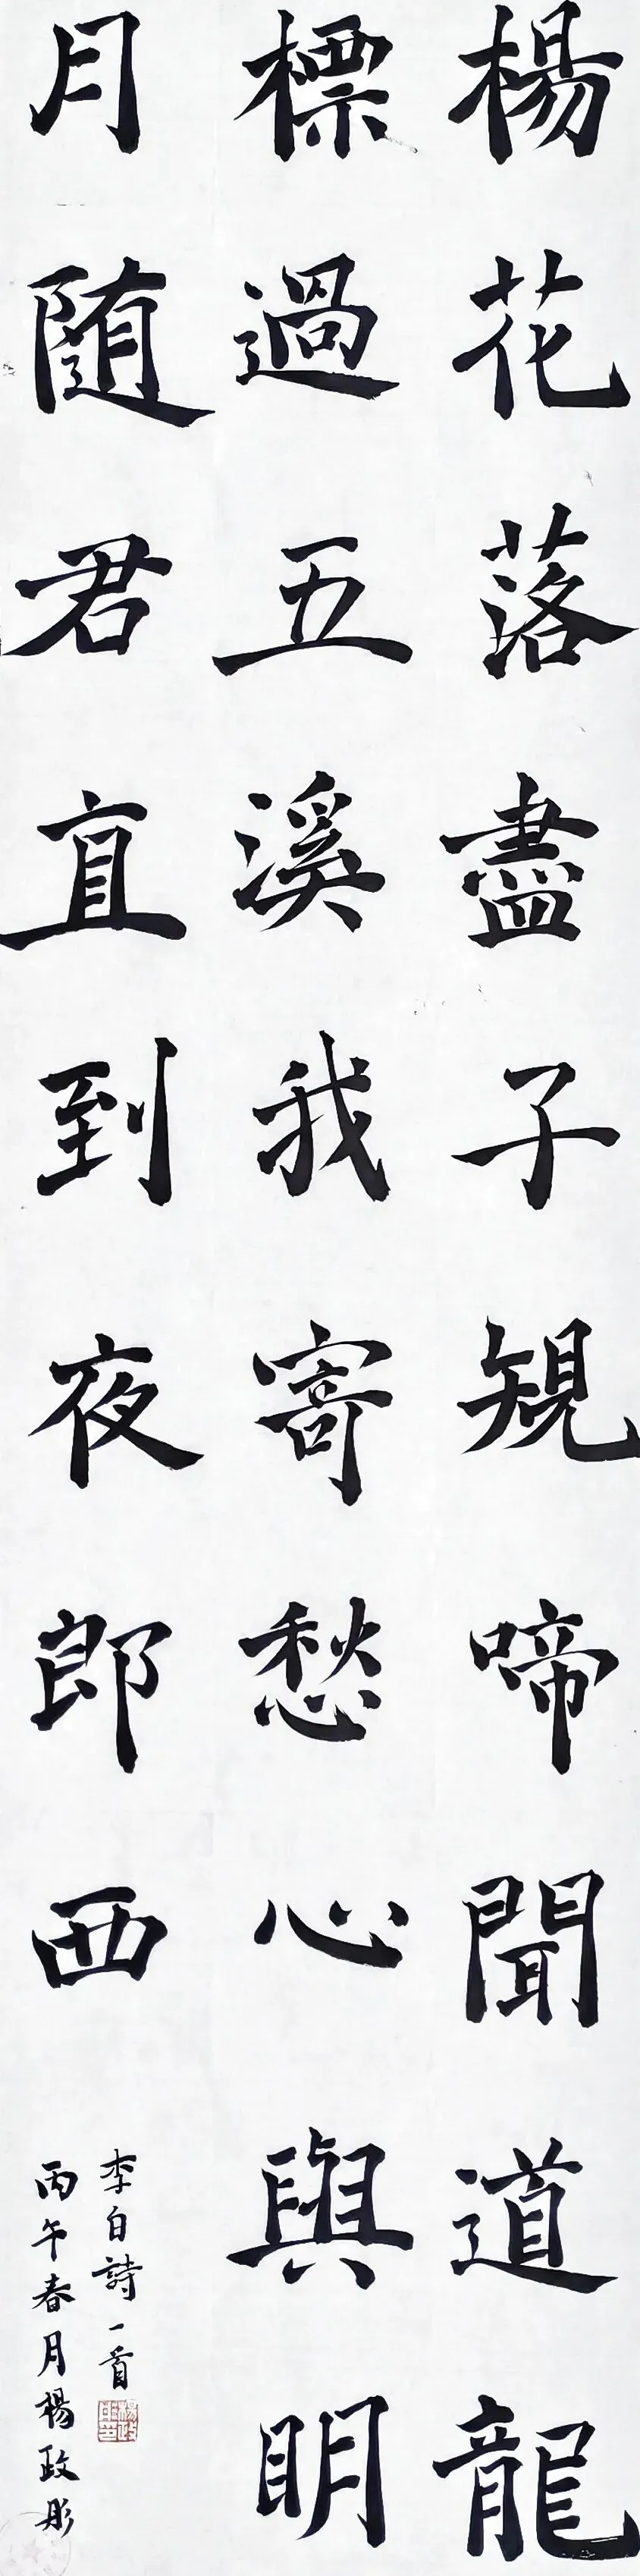 楊花落盡子規啼聞道龍
標過五溪我寄愁心與明
月随君直到夜郎西
李白詩一首
丙午春月楊政彤